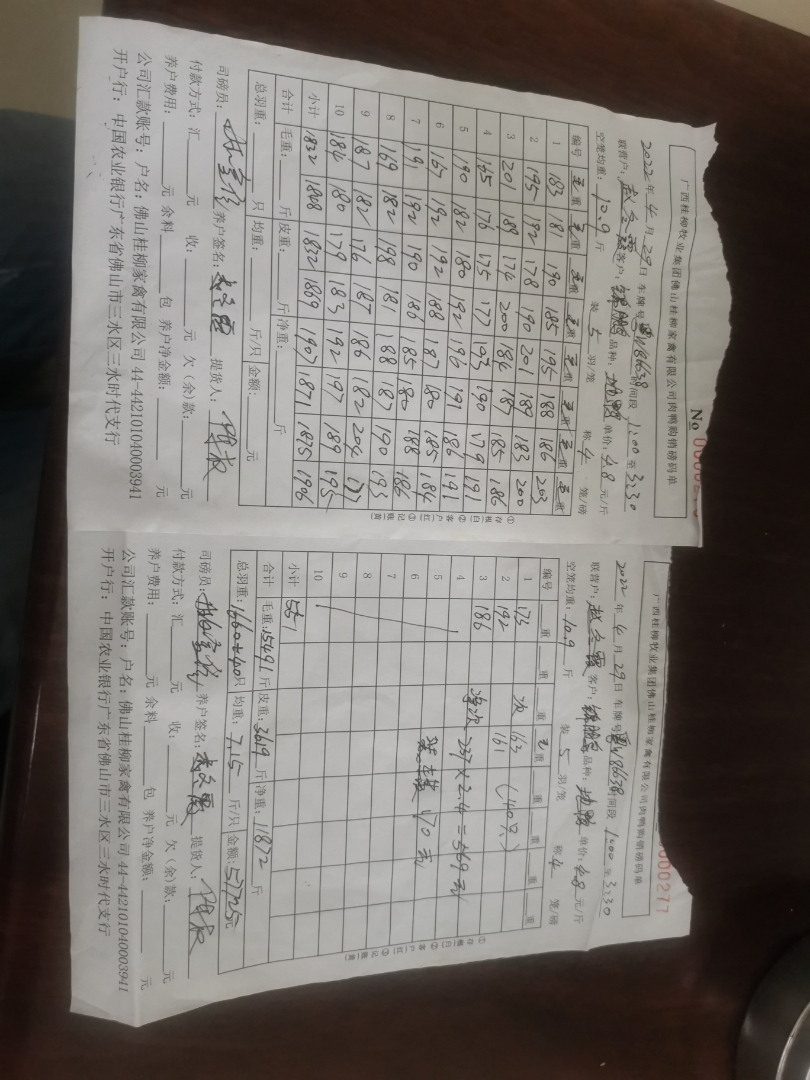 广西桂柳牧业集团佛山桂柳家禽有限公司肉鸭购销磅码单
No
2022年4月29日 车牌号 W86638 时间段 1:00至3:30
联营户: 客户: 品种: 单价:4.8元/斤
空笼均重:10.9斤 装5羽/笼 称4笼/磅
编号 毛重 毛重 毛重 毛重 毛重 毛重 毛重 毛重
1 183 181 190 185 195 188 186 203
2 195 192 178 190 201 189 183 200
3 201 188 174 200 184 187 185 186
4 165 176 175 177 193 190 179 191
5 190 182 180 192 196 191 186 191
6 167 192 192 188 187 180 185 184
7 191 192 190 186 185 180 188 186
8 169 182 198 181 188 187 190 193
9 187 182 176 187 186 182 204
10 184 180 179 183 192 197 189 195
小计 1832 1808 1832 1869 1907 1871 1875 1906
合计 毛重:斤 皮重:斤 净重:斤
总羽重:只 均重:斤/只 金额:元
司磅员: 养户签名: 提货人:
付款方式:汇元 收:元 欠(余)款:元
养户费用:元 余料包 养户净金额:元
公司汇款账号:户名:佛山桂柳家禽有限公司 44-442101040003941
开户行:中国农业银行广东省佛山市三水区三水时代支行
①存根(白) ②客户(红) ③记账(黄)
广西桂柳牧业集团佛山桂柳家禽有限公司肉鸭购销磅码单
000277
2022年4月29日 车牌号 W86638 时间段 1:00至3:30
联营户: 客户: 品种: 单价:4.8元/斤
空笼均重:10.9斤 装5羽/笼 称4笼/磅
编号 重 重 重 毛重 重 重 重 重
1 173 次 163
2 192 161 (40只)
3 186
4 237×2.4=569元
5
6 70元
7
8
9
10
小计 551
合计 毛重:15491斤 皮重:3619斤 净重:11872斤
总羽重:1660+40只 均重:7.15斤/只 金额:57725元
司磅员: 养户签名: 提货人:
付款方式:汇元 收:元 欠(余)款:元
养户费用:元 余料包 养户净金额:元
公司汇款账号:户名:佛山桂柳家禽有限公司 44-442101040003941
开户行:中国农业银行广东省佛山市三水区三水时代支行
①存根(白) ②客户(红) ③记账(黄)